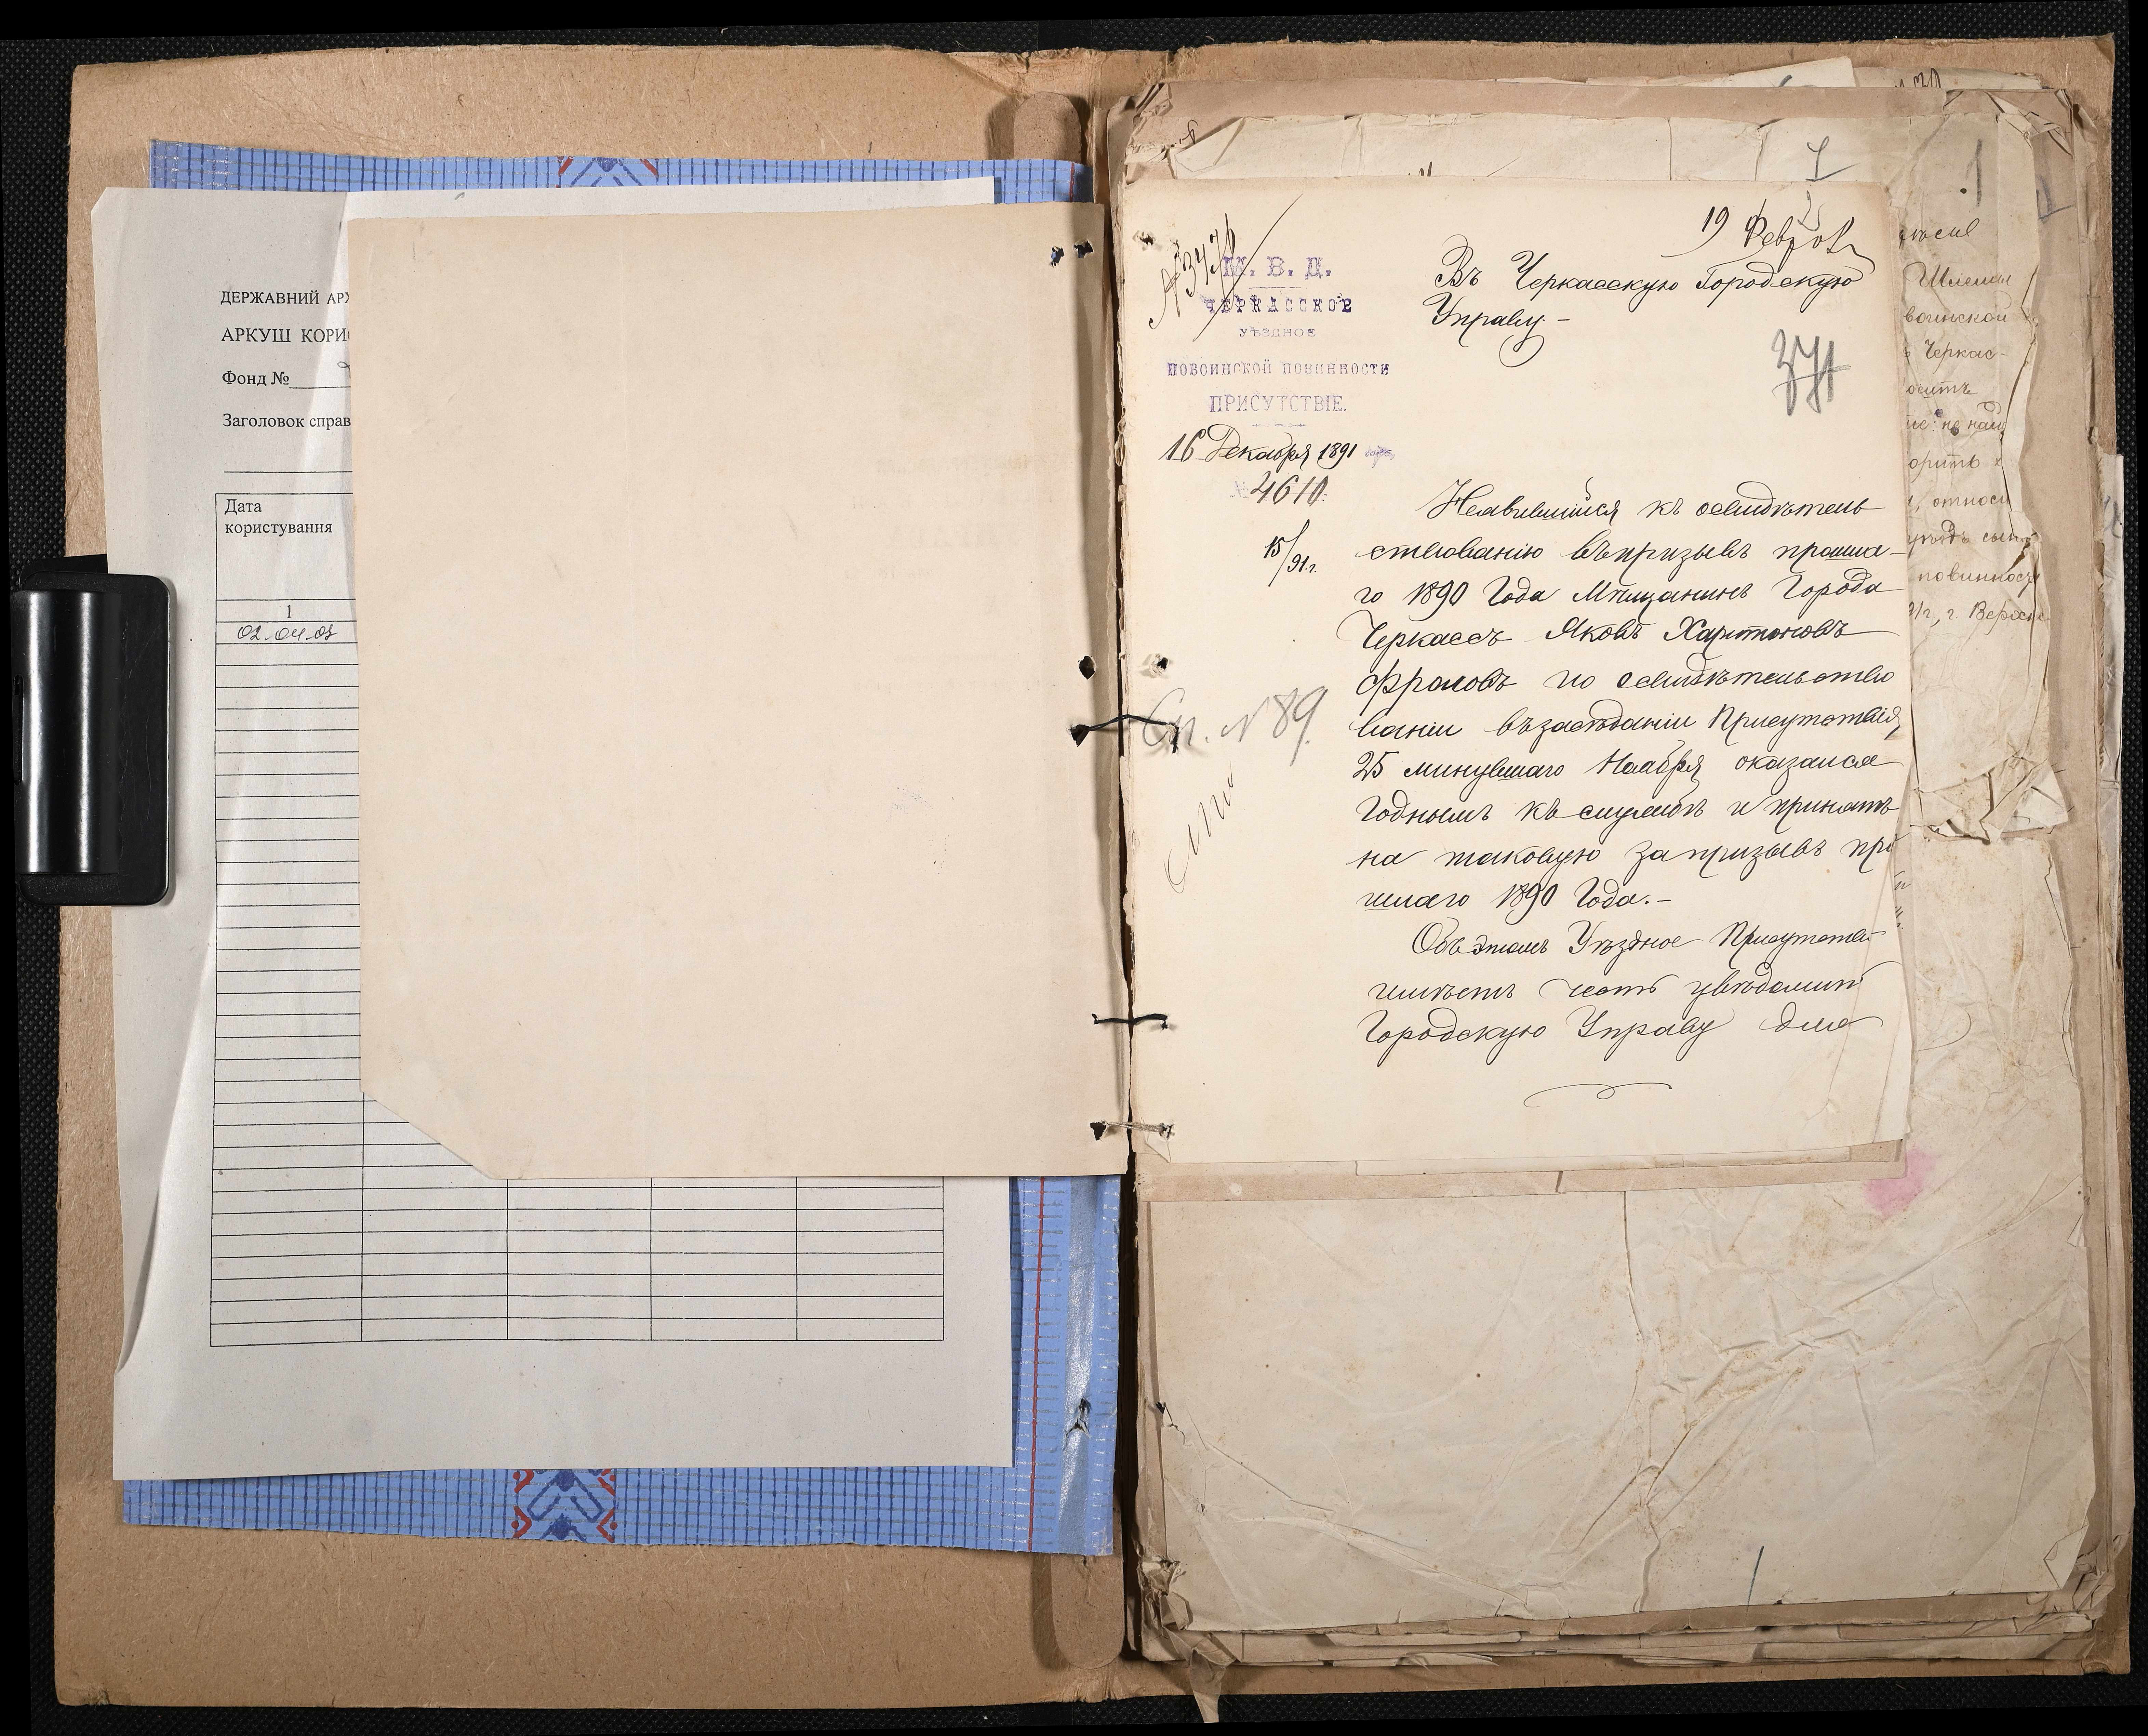 ДЕРЖАВНИЙ АРХ
АРКУШ КОРИС
Фонд №
Заголовок справ
Дата
користування
1
02.04.03
19 Февр
№ 3476
М. В. Д.
ЧЕРКАССКОЕ
УѢЗДНОЕ
ПОВОИНСКОЙ ПОВИННОСТИ
ПРИСУТСТВІЕ.
16 Декабря 1891 года
№ 4610.
15/91 г.
Въ Черкасскую Городскую
Управу.-
371
Неявившійся къ освидѣтель
ствованію въ призывъ прошла-
го 1890 Года Мѣщанинъ Города
Черкассъ Яковъ Харитоновъ
Фроловъ по освидѣтельство
ваніи въ засѣданіи Присутствія,
25 минувшаго Ноября оказался
годнымъ къ службѣ и принятъ
на таковую за призывъ про
шлаго 1890 Года.-
Объ этомъ Уѣздное Присутстві
имѣетъ честь увѣдомить
Городскую Управу для
Сп. № 89.
1
воинской
Черкас-
осить
орить
относи
повинност